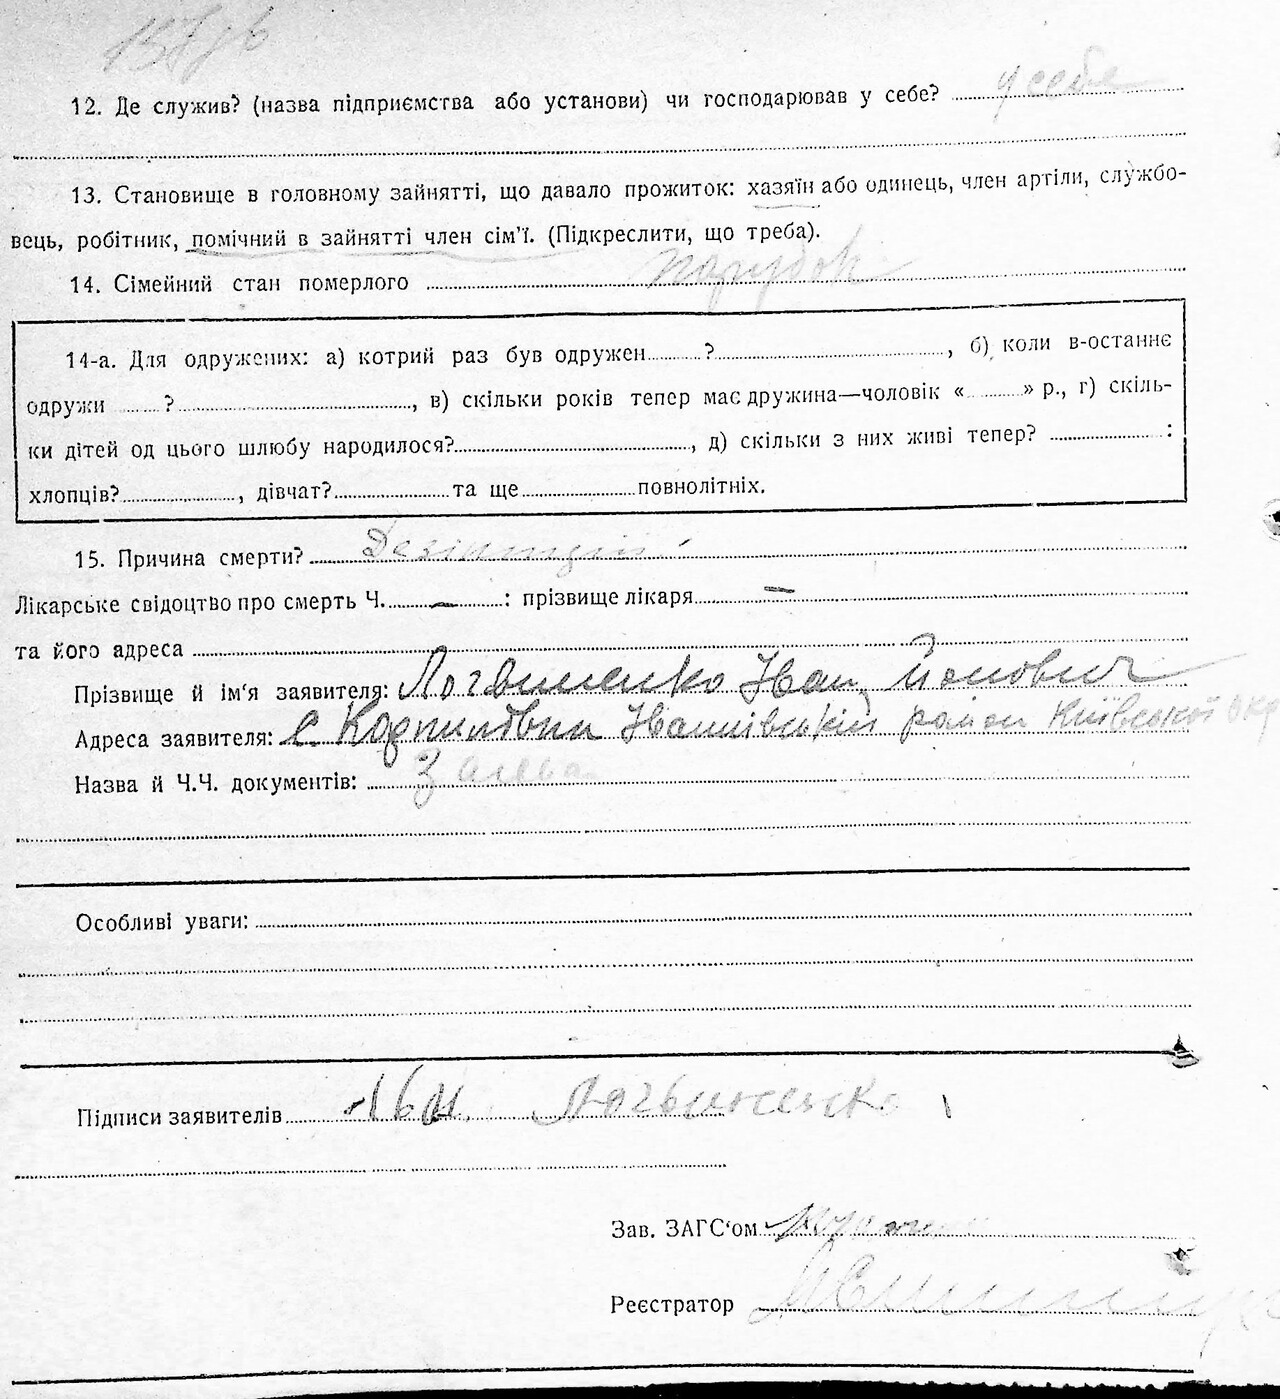 12. Де служив? (назва підприємства або установи) чи господарював у себе? у себе
13. Становище в головному зайнятті, що давало прожиток: хазяїн або одинець, член артіли, службо-
вець, робітник, помічний в зайнятті член сім'ї. (Підкреслити, що треба).
14. Сімейний стан померлого парубок
14-а. Для одружених: а) котрий раз був одружен ? , б) коли в-останнє
одружи ? , в) скільки років тепер має дружина—чоловік « » р., г) скіль-
ки дітей од цього шлюбу народилося? , д) скільки з них живі тепер? :
хлопців? , дівчат? та ще повнолітніх.
15. Причина смерти?
Лікарське свідоцтво про смерть Ч. — : прізвище лікаря —
та його адреса
Прізвище й ім'я заявителя: Логвиненко Іван Йонович
Адреса заявителя: с. Іванківський район Київської окр
Назва й Ч.Ч. документів: З слова
Особливі уваги:
Підписи заявителів Логвиненко
Зав. ЗАГС'ом
Реєстратор